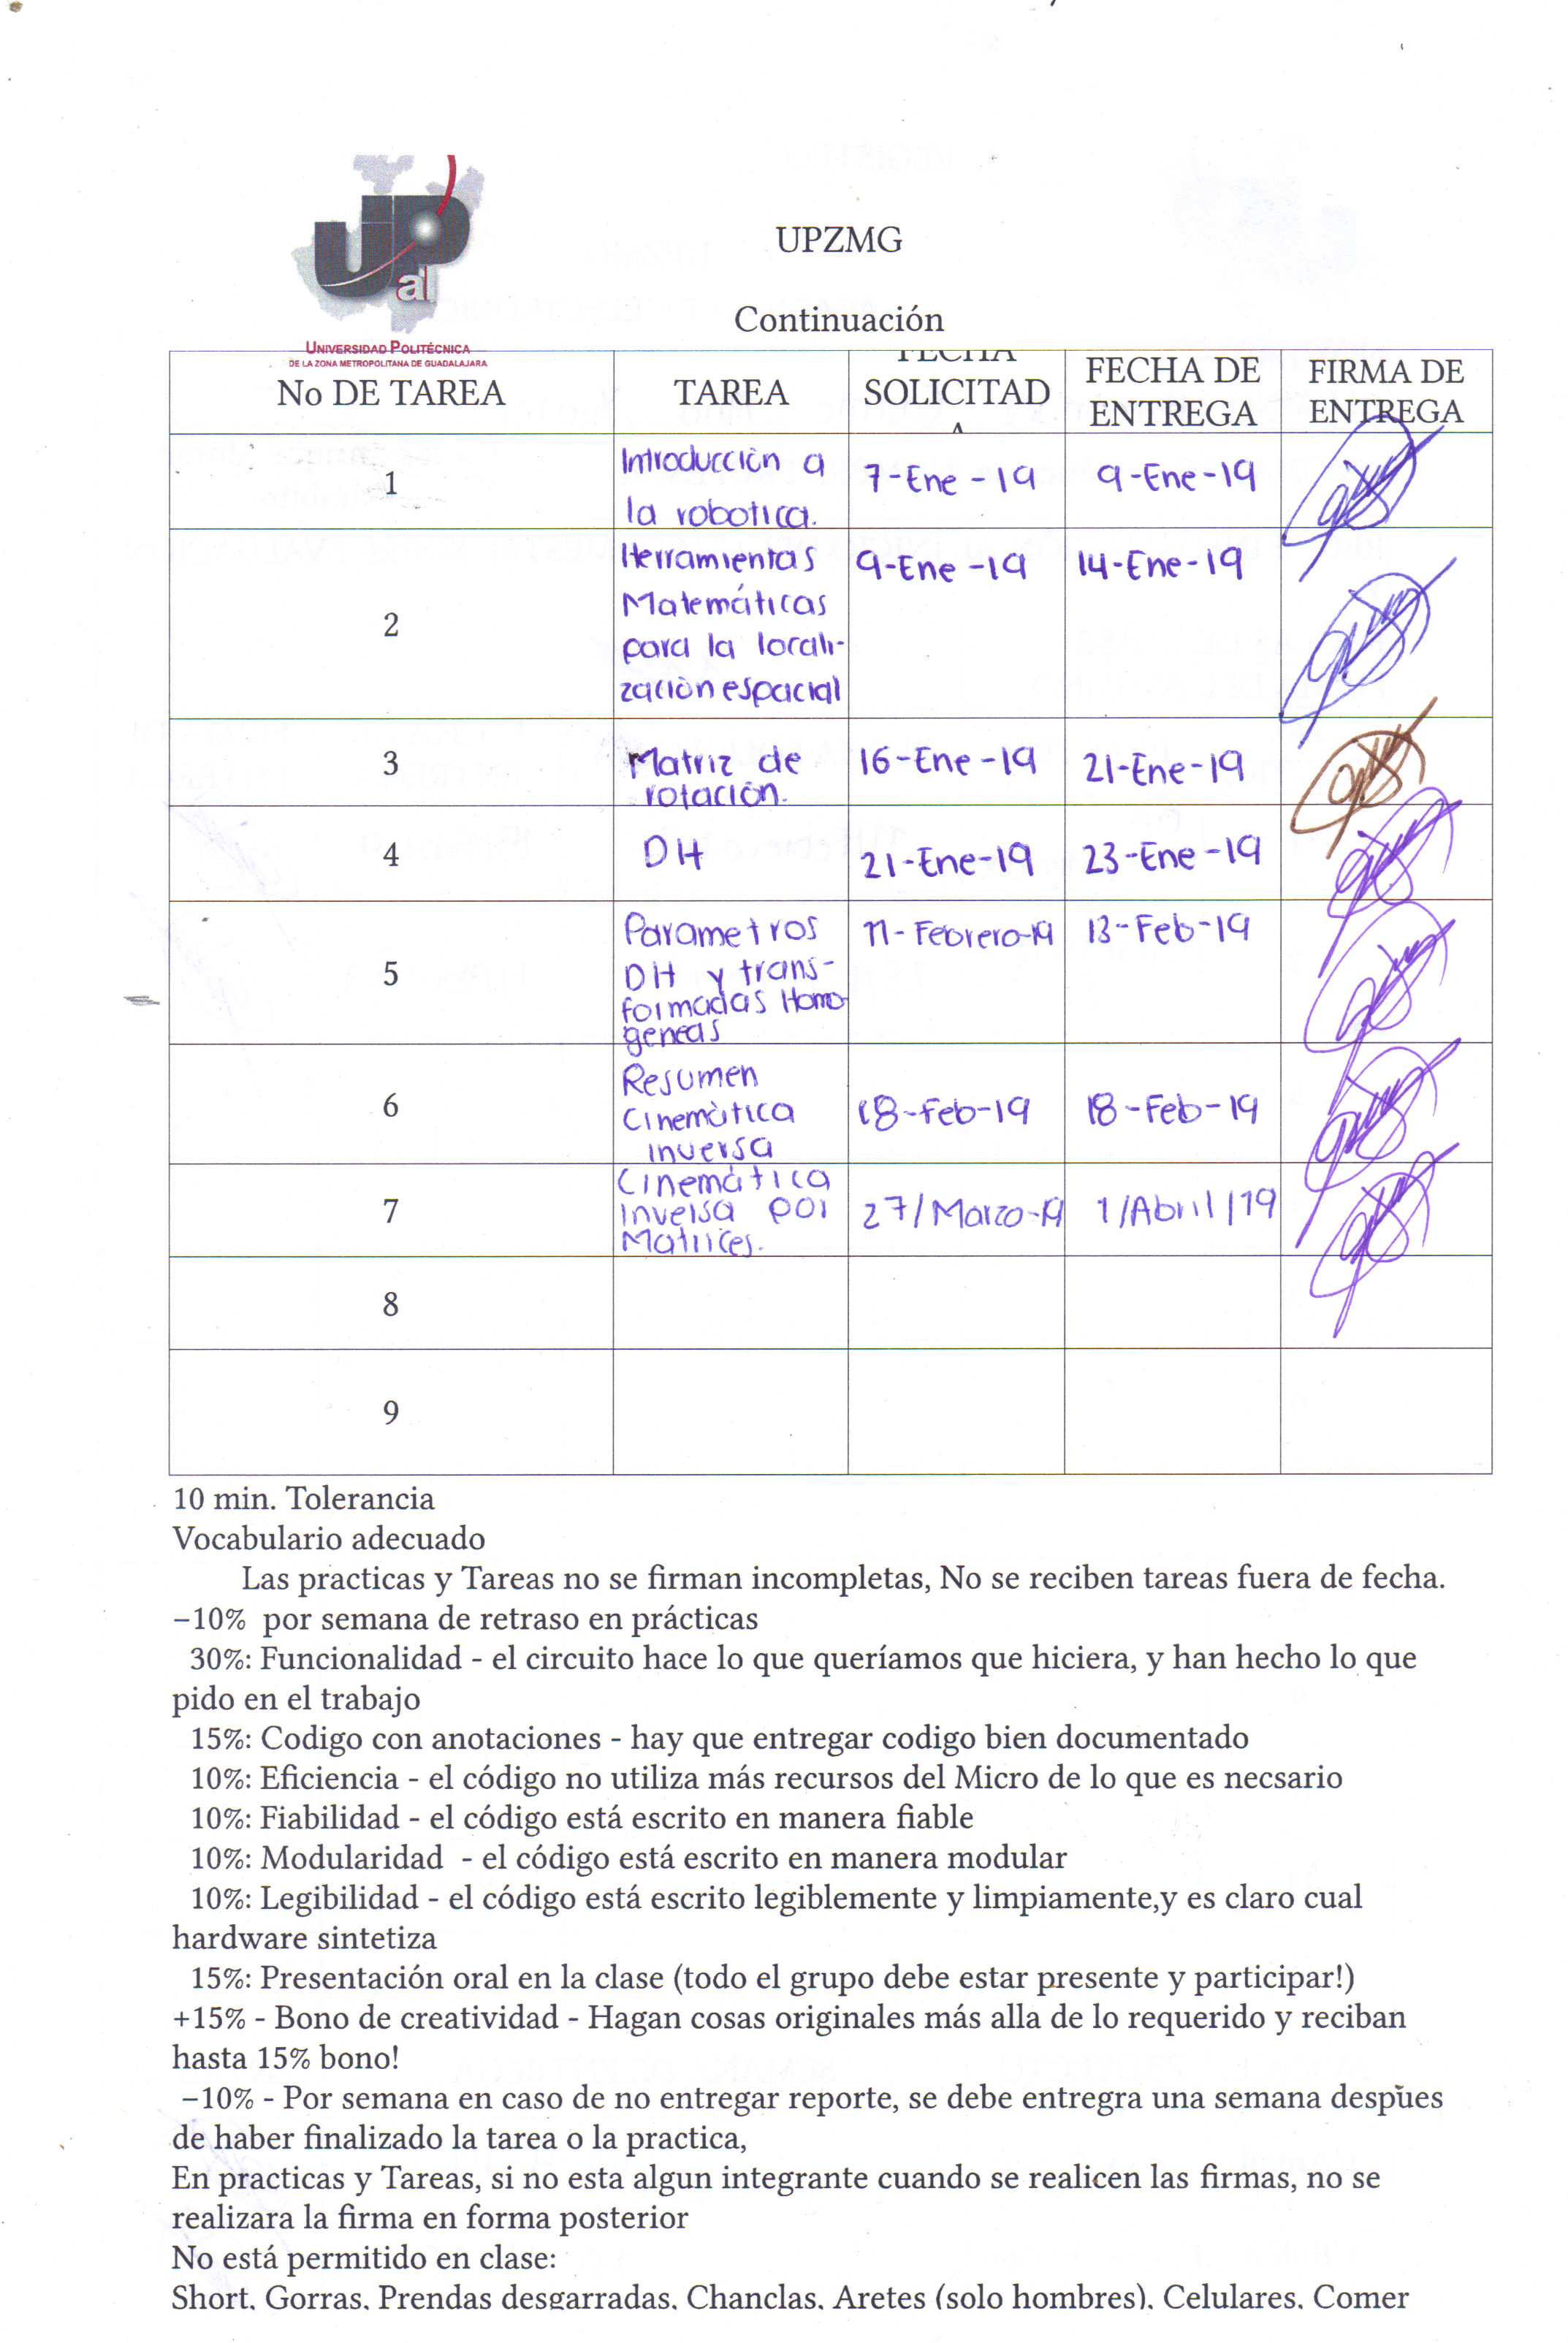 UP
al
UNIVERSIDAD POLITÉCNICA
DE LA ZONA METROPOLITANA DE GUADALAJARA
UPZMG
Continuación
No DE TAREA TAREA FECHA SOLICITADA FECHA DE ENTREGA FIRMA DE ENTREGA
1 Introducción a la robotica. 7-Ene-19 9-Ene-19
2 Herramientas Matemáticas para la locali-zación espacial 9-Ene-19 14-Ene-19
3 Matriz de rotación. 16-Ene-19 21-Ene-19
4 DH 21-Ene-19 23-Ene-19
5 Parametros DH y trans-formadas Homogeneas 11-Febrero-19 13-Feb-19
6 Resumen Cinemática inversa 18-Feb-19 18-Feb-19
7 Cinemática inversa por Matrices. 27/Marzo-19 1/Abril/19
8
9
10 min. Tolerancia
Vocabulario adecuado
Las practicas y Tareas no se firman incompletas, No se reciben tareas fuera de fecha.
−10% por semana de retraso en prácticas
30%: Funcionalidad - el circuito hace lo que queríamos que hiciera, y han hecho lo que
pido en el trabajo
15%: Codigo con anotaciones - hay que entregar codigo bien documentado
10%: Eficiencia - el código no utiliza más recursos del Micro de lo que es necsario
10%: Fiabilidad - el código está escrito en manera fiable
10%: Modularidad - el código está escrito en manera modular
10%: Legibilidad - el código está escrito legiblemente y limpiamente,y es claro cual
hardware sintetiza
15%: Presentación oral en la clase (todo el grupo debe estar presente y participar!)
+15% - Bono de creatividad - Hagan cosas originales más alla de lo requerido y reciban
hasta 15% bono!
−10% - Por semana en caso de no entregar reporte, se debe entregra una semana despües
de haber finalizado la tarea o la practica,
En practicas y Tareas, si no esta algun integrante cuando se realicen las firmas, no se
realizara la firma en forma posterior
No está permitido en clase:
Short, Gorras, Prendas desgarradas, Chanclas, Aretes (solo hombres), Celulares, Comer